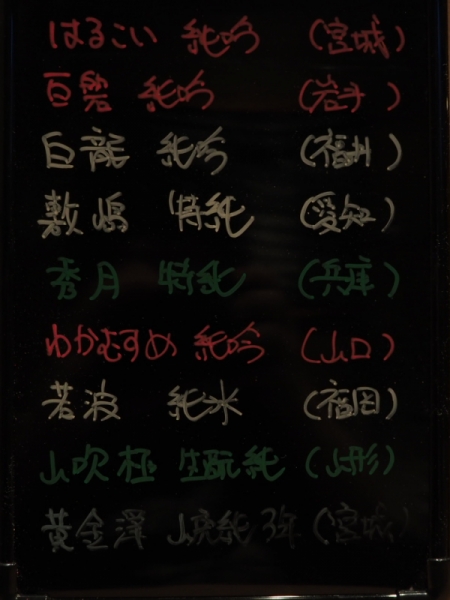 はるこい 純吟 (宮城)
百磐 純吟 (岩手)
白龍 純吟 (福井)
敷嶋 特純 (愛知)
秀月 特純 (兵庫)
わかむすめ 純吟 (山口)
若波 純米 (福岡)
山吹極 生酛純 (山形)
黄金澤 山廃純 弥 (宮城)